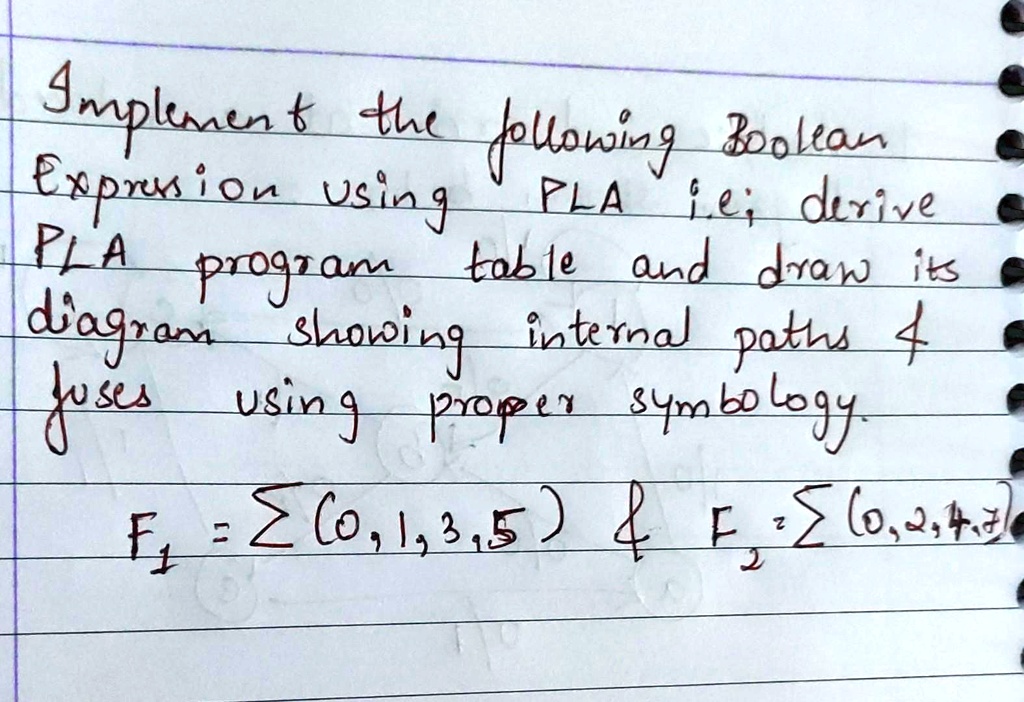 Implement the following Boolean
Expression using PLA i.e; derive
PLA program table and draw its
diagram showing internal paths &
fuses using proper symbology.
F₁ = Σ(0,1,3,5) & F₂ = Σ(0,2,4,7)